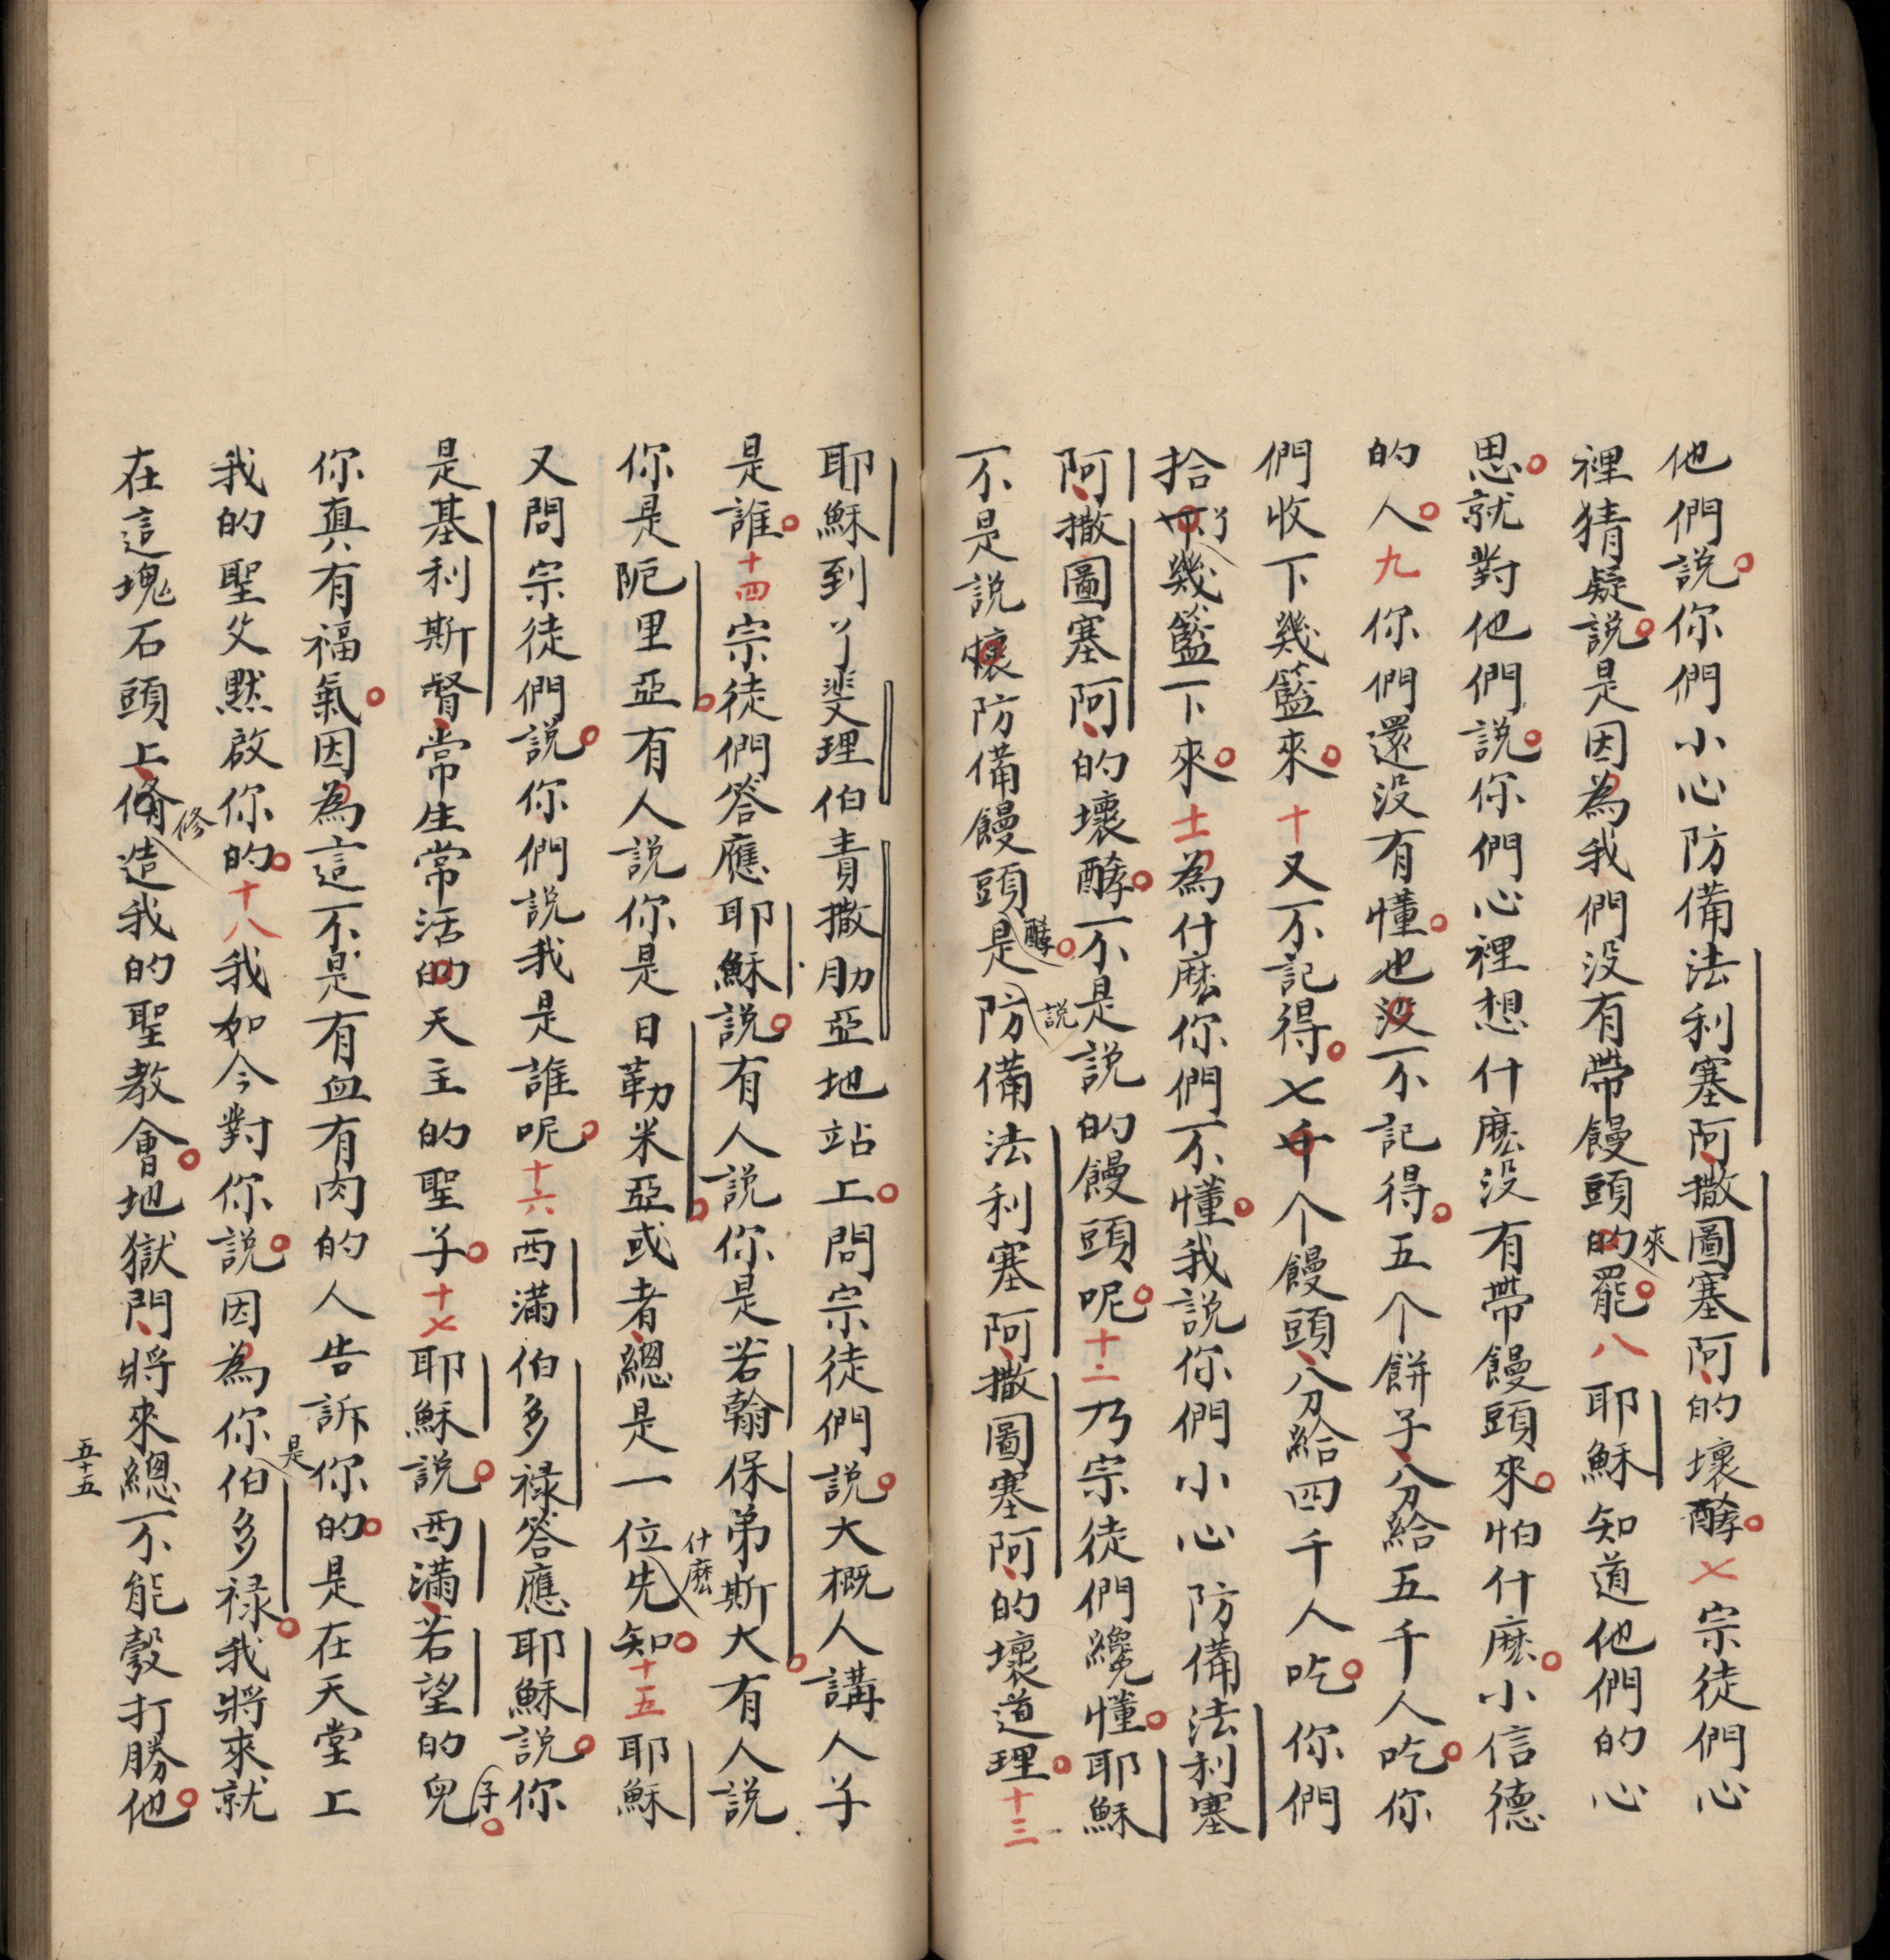 他們說。你們小心防備法利塞阿、撒圖塞阿、的壞酵。七宗徒們心
裡猜疑說。是因為我們没有帶饅頭的來罷。八耶穌知道他們的心
思。就對他們說。你們心裡想什麽没有帶饅頭來。怕什麽。小信德
的人。九你們還没有懂。也没不記得。五个餅子、分給五千人吃。你
們收下幾籃來。十又不記得。七千个饅頭、分給四千人吃。你們
拾幾籃下來。十一為什麽你們不懂。我説你們小心防備法利塞
阿、撒圖塞阿、的壞酵。不是説的饅頭呢。十二乃宗徒們纔懂。耶穌
不是説壞防備饅頭酵。是説防備法利塞阿、撒圖塞阿、的壞道理。十三
耶穌到斐理伯責撒肋亞地站上。問宗徒們説。大概人講人子
是誰。十四宗徒們答應耶穌説。有人説你是若翰保弟斯大。有人説
你是阨里亞。有人説你是日勒米亞。或者、總是一位什麽先知。十五耶穌
又問宗徒們説。你們説我是誰呢。十六西滿伯多禄答應耶穌説。你
是基利斯督、常生常活的天主的聖子。十七耶穌説。西滿、若望的兒子。
你真有福氣。因為這不是有血有肉的人告訴你的。是在天堂上
我的聖父默啟你的。十八我如今對你説。因為你是伯多禄。我將來就
在這塊石頭上、修造我的聖教會。地獄門、將來總不能彀打勝他。
五十五